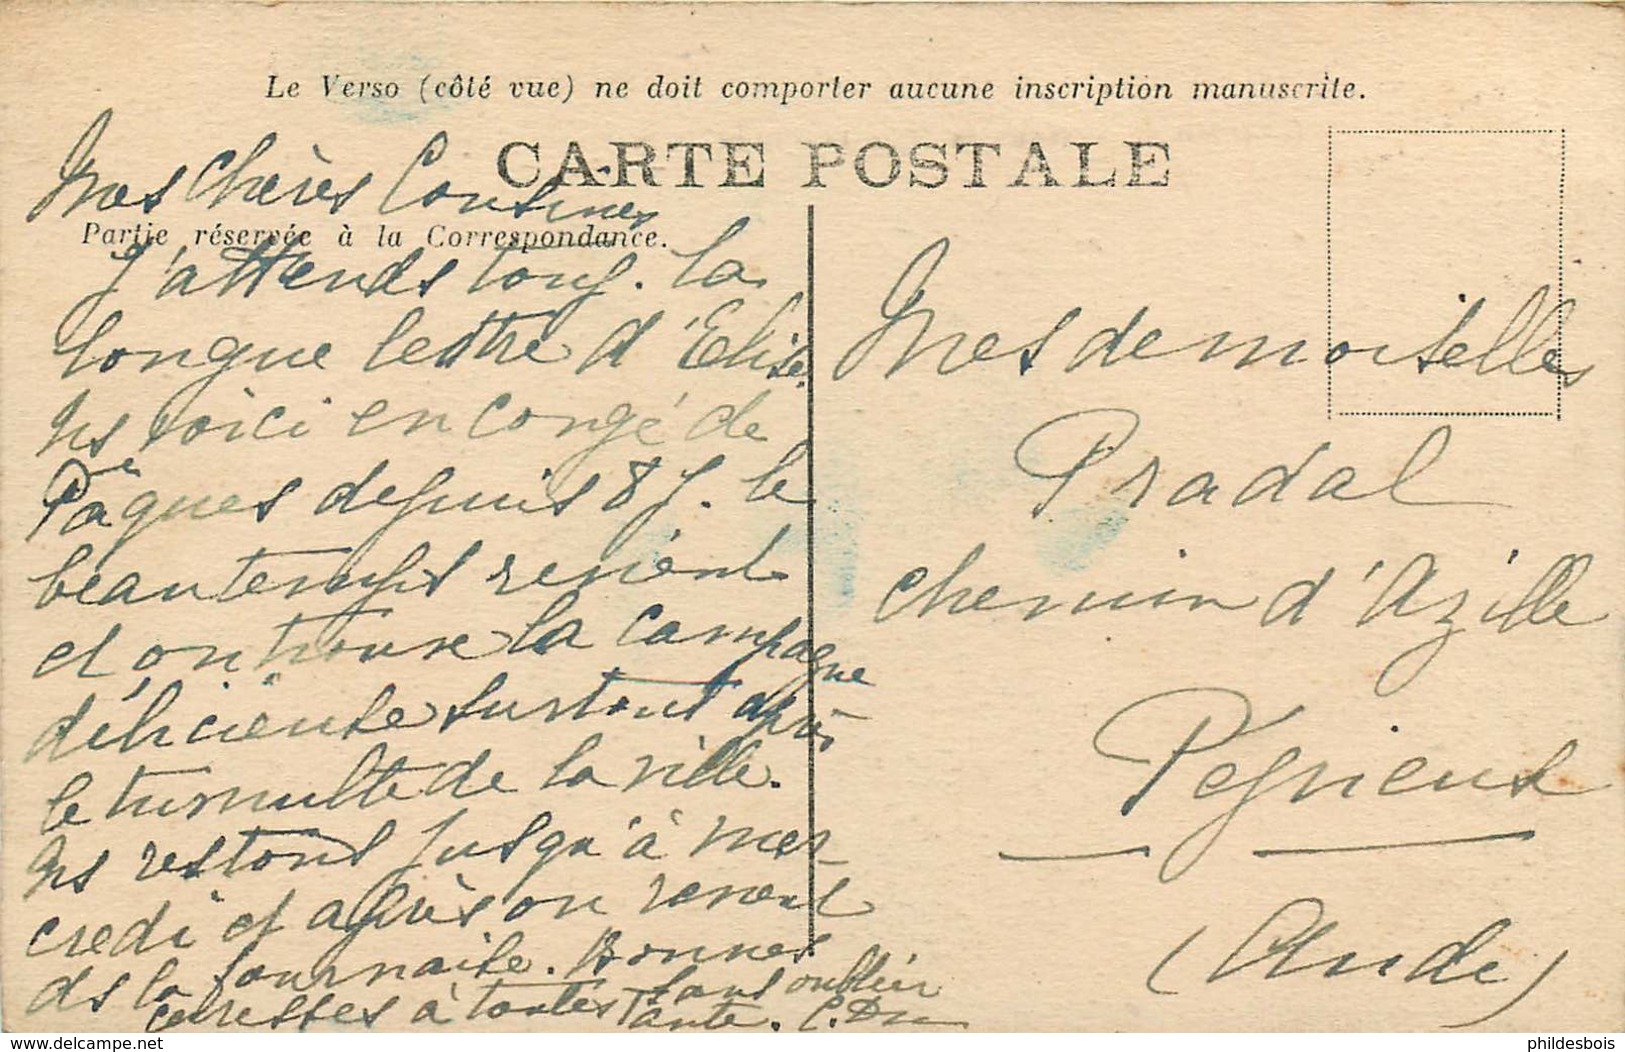 Le Verso (côté vue) ne doit comporter aucune inscription manuscrite.
CARTE POSTALE
Partie réservée à la Correspondance.
Mes Chères Cousines
J'attends touj. la
longue lettre d'Elise.
Ns voici en congé de
Pâques depuis 8 j. le
beau temps revient
et on trouve la campagne
délicieuse surtout après
le tumulte de la ville.
Ns restons jusqu'à mer-
credi et après on revient
ds la fournaise. Bonnes
caresses à toutes sans oublier
Tante.
Mesdemoiselles
Pradal
chemin d'Azille
Pépieux
(Aude)
©delcampe.net
phildesbois